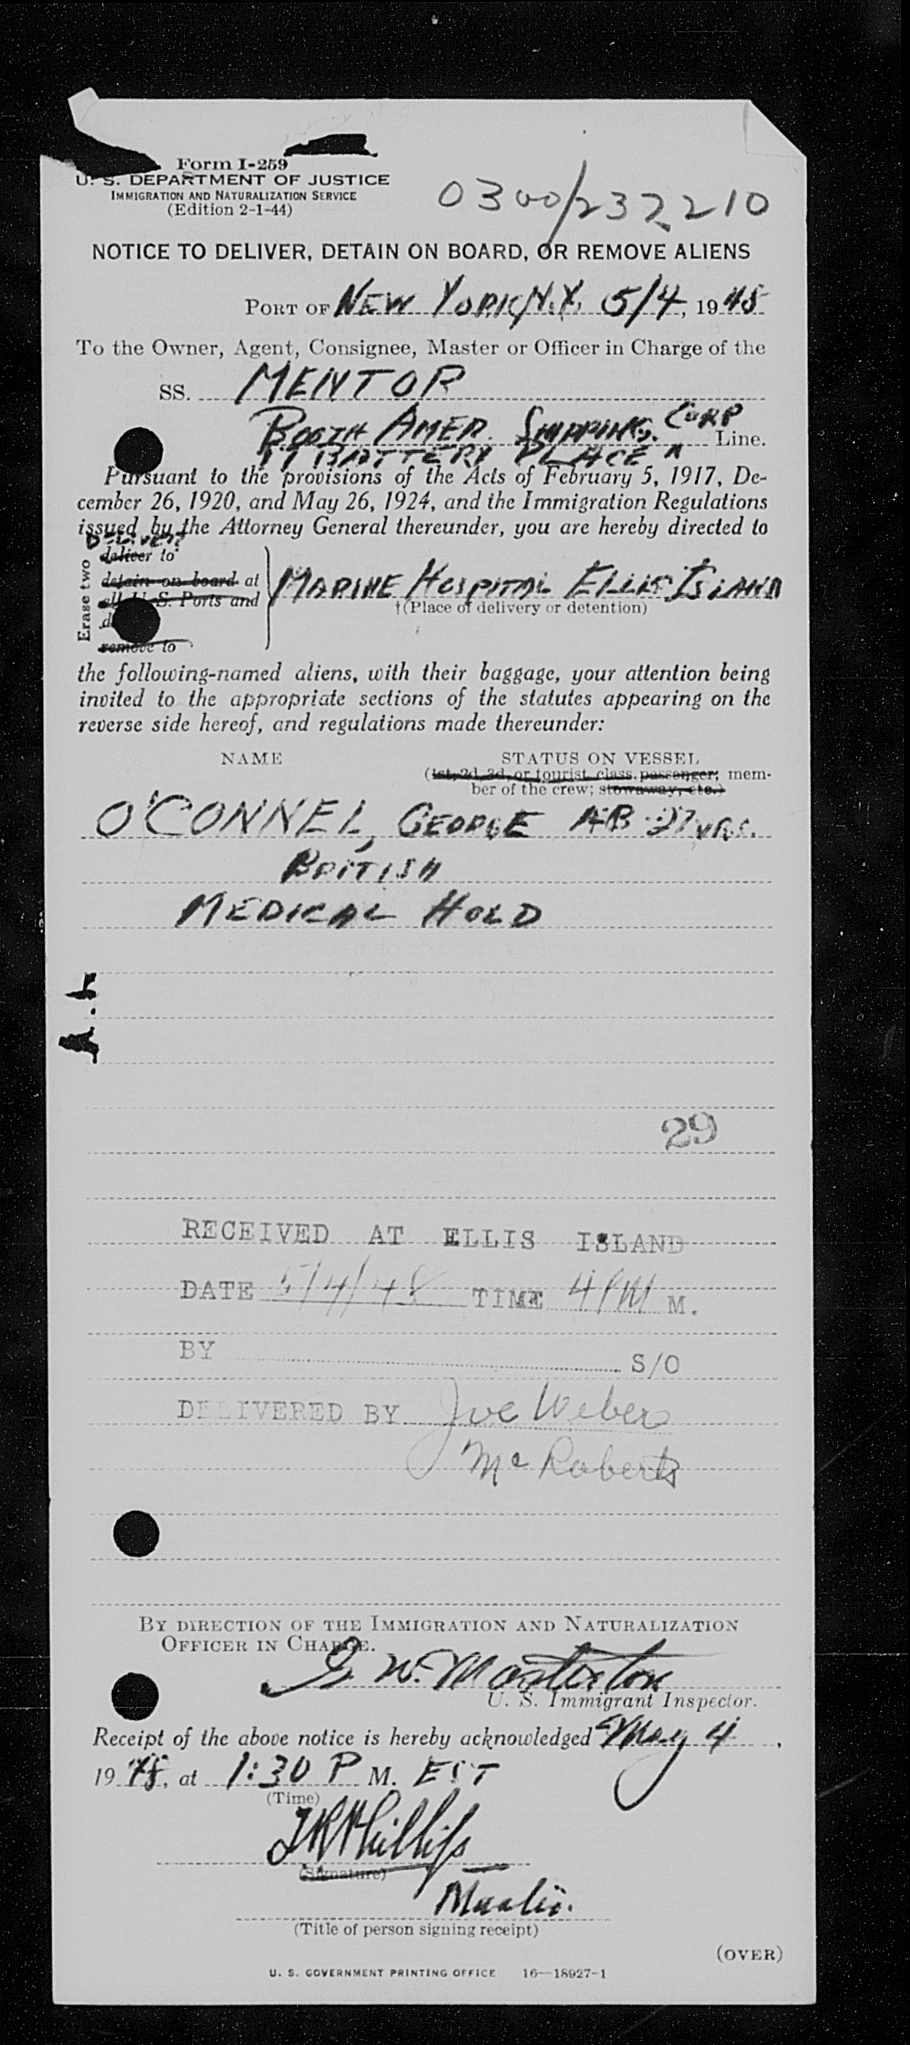 Form I-259
U. S. DEPARTMENT OF JUSTICE
IMMIGRATION AND NATURALIZATION SERVICE
(Edition 2-1-44)
0300/232210
NOTICE TO DELIVER, DETAIN ON BOARD, OR REMOVE ALIENS
PORT OF NEW YORK, N.Y. 5/4, 1948
To the Owner, Agent, Consignee, Master or Officer in Charge of the
SS. MENTOR
BOOTH AMER. SHIPPING. CORP Line.
17 BATTERY PLACE
Pursuant to the provisions of the Acts of February 5, 1917, De-
cember 26, 1920, and May 26, 1924, and the Immigration Regulations
issued by the Attorney General thereunder, you are hereby directed to
DELIVER
Erase two
deliver to
detain on board at
all U. S. Ports and
remove to
MARINE HOSPITAL ELLIS ISLAND
†(Place of delivery or detention)
the following-named aliens, with their baggage, your attention being
invited to the appropriate sections of the statutes appearing on the
reverse side hereof, and regulations made thereunder:
NAME STATUS ON VESSEL
(1st, 2d, 3d, or tourist class passenger; mem-
ber of the crew; stowaway, etc.)
O'CONNEL, GEORGE AB 27 YRS.
BRITISH
MEDICAL HOLD
29
RECEIVED AT ELLIS ISLAND
DATE 5/4/48 TIME 4 PM M.
BY S/O
DELIVERED BY Joe Weber
McRoberts
BY DIRECTION OF THE IMMIGRATION AND NATURALIZATION
OFFICER IN CHARGE.
G. W. Masterton
U. S. Immigrant Inspector.
Receipt of the above notice is hereby acknowledged May 4,
1948, at 1:30 P M. EST
(Time)
Phillips
(Signature)
Master.
(Title of person signing receipt)
(OVER)
U. S. GOVERNMENT PRINTING OFFICE 16—18927-1